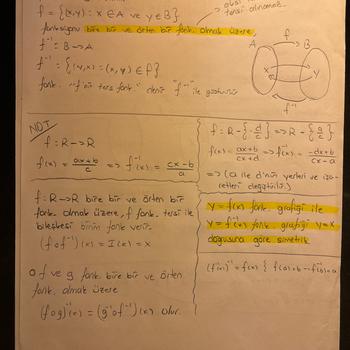 f = {(x,y) : x ∈ A ve y ∈ B}
fonksiyonu bire bir ve örten bir fonk. olmak üzere,
f⁻¹ = B → A
f⁻¹ = {(y,x) = (x,y) ∈ f}
fonk. "f'nin ters fonk." denir "f⁻¹" ile gösterilir
tersi alınamaz.
A f B
x y
f⁻¹
NOT
f : R → R
f(x) = ax+b / c => f⁻¹(x) = cx-b / a
f : R → R bire bir ve örten bir
fonk. olmak üzere, f fonk. tersi ile
bileşkesi birim fonk verir.
(f o f⁻¹)(x) = I(x) = x
o f ve g fonk. bire bir ve örten
fonk. olmak üzere
(f o g)⁻¹(x) = (g⁻¹ o f⁻¹)(x) olur.
f : R - {-d/c} => R - {a/c}
f(x) = ax+b / cx+d => f⁻¹(x) = -dx+b / cx-a
=> (a ile d'nin yerleri ve işa-
retleri değiştirilir.)
y = f(x) fonk. grafiği ile
y = f⁻¹(x) fonk. grafiği y = x
doğrusuna göre simetrik
(f⁻¹(x))⁻¹ = f(x) { f(a) = b - f⁻¹(b) = a